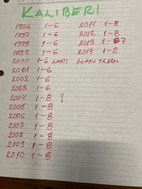 KALIBERI
1996 1-6 2011 1-8
1997 1-6 2012 1-8
1998 1-6 2013 1-7
1999 1-6 2014 1-8
2000 1-6
2001 1-6
2002 1-6
2003 1-6
2004 1-8 !
2005 1-8
2006 1-8
2007 1-8
2008 1-8
2009 1-8
2010 1-8